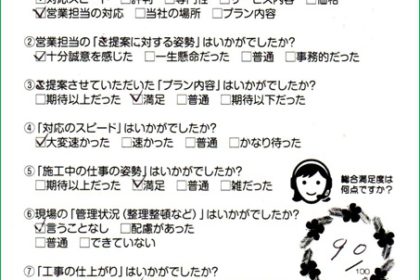 □対応スピード □評判 □専門性 □サービス内容 □価格
☑営業担当の対応 □当社の場所 □プラン内容
②営業担当の「ご提案に対する姿勢」はいかがでしたか?
☑十分誠意を感じた □一生懸命だった □普通 □事務的だった
③ご提案させていただいた「プラン内容」はいかがでしたか?
□期待以上だった ☑満足 □普通 □期待以下だった
④「対応のスピード」はいかがでしたか?
☑大変速かった □速かった □普通 □かなり待った
⑤「施工中の仕事の姿勢」はいかがでしたか?
□期待以上だった ☑満足 □普通 □雑だった
総合満足度は
何点ですか?
⑥現場の「管理状況(整理整頓など)」はいかがでしたか?
☑言うことなし □配慮があった
□普通 □できていない
90
/100
点
⑦「工事の仕上がり」はいかがでしたか?